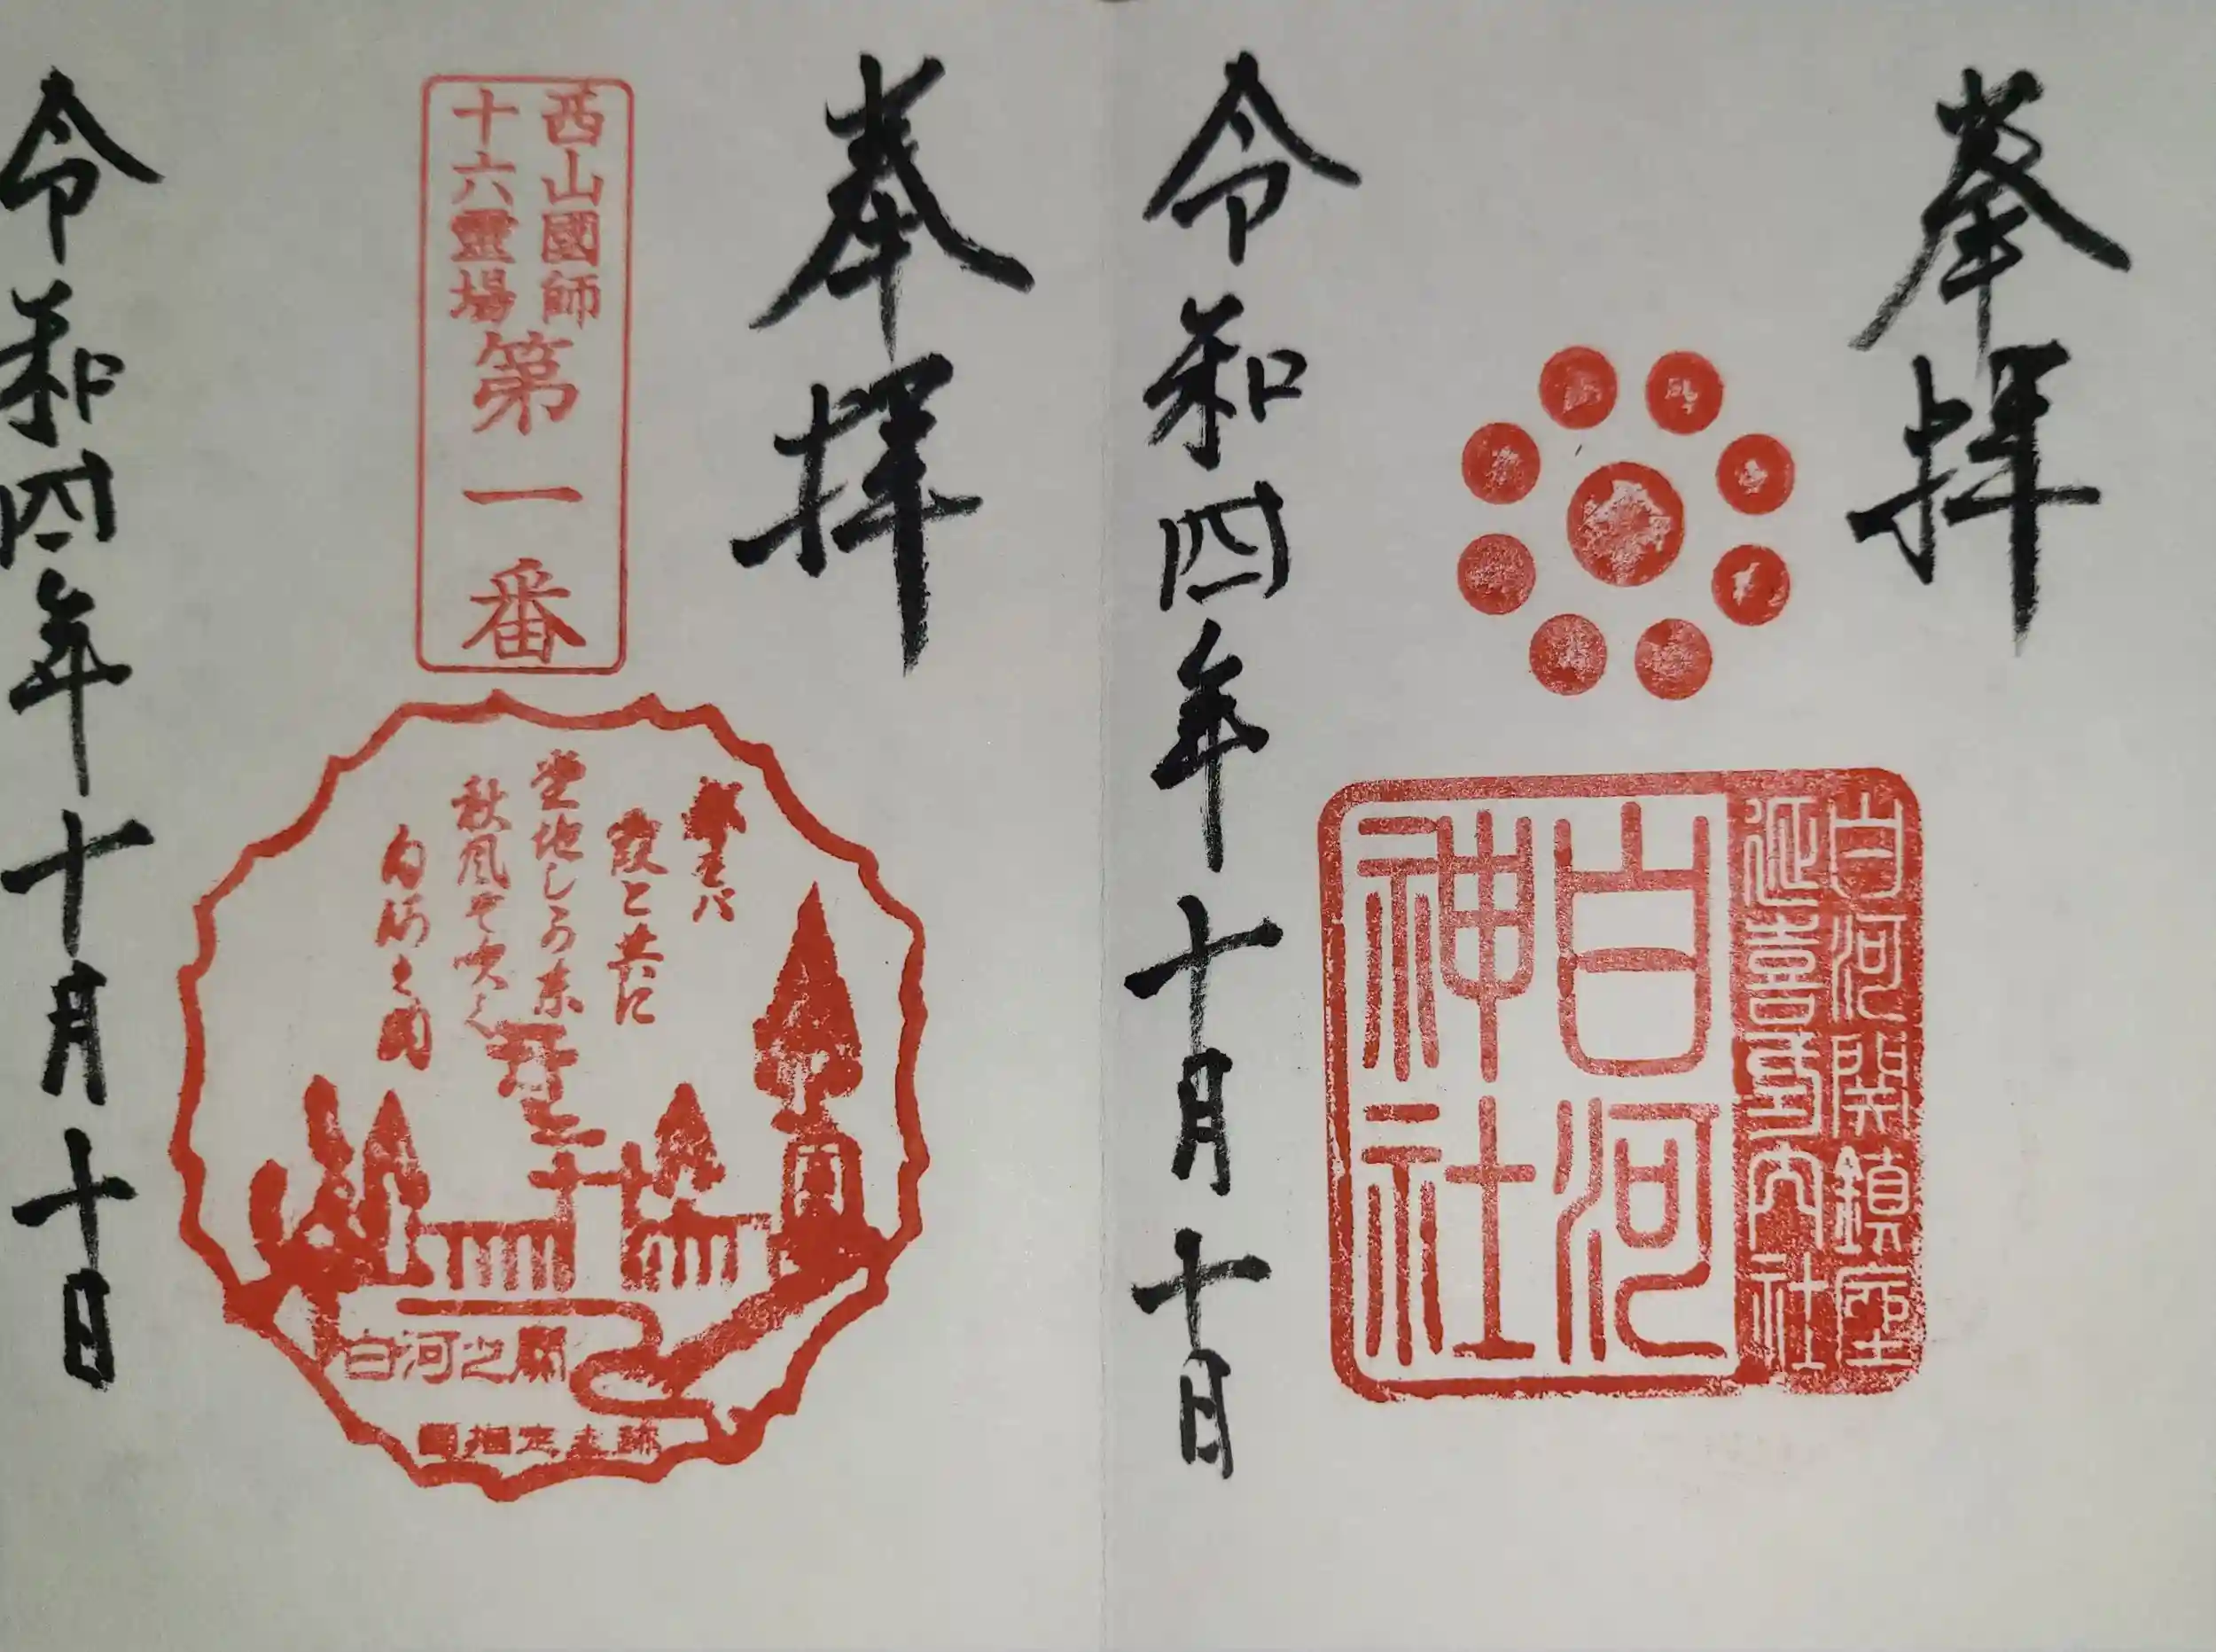 奉拝
白河関鎮座
延喜式内社
白河
神社
令和四年十月十日
奉拝
西山國師
十六霊場
第一番
都をバ
霞と共に
堂地しかど
秋風そ吹く
白河之関
白河之関
國指定史跡
令和四年十月十日